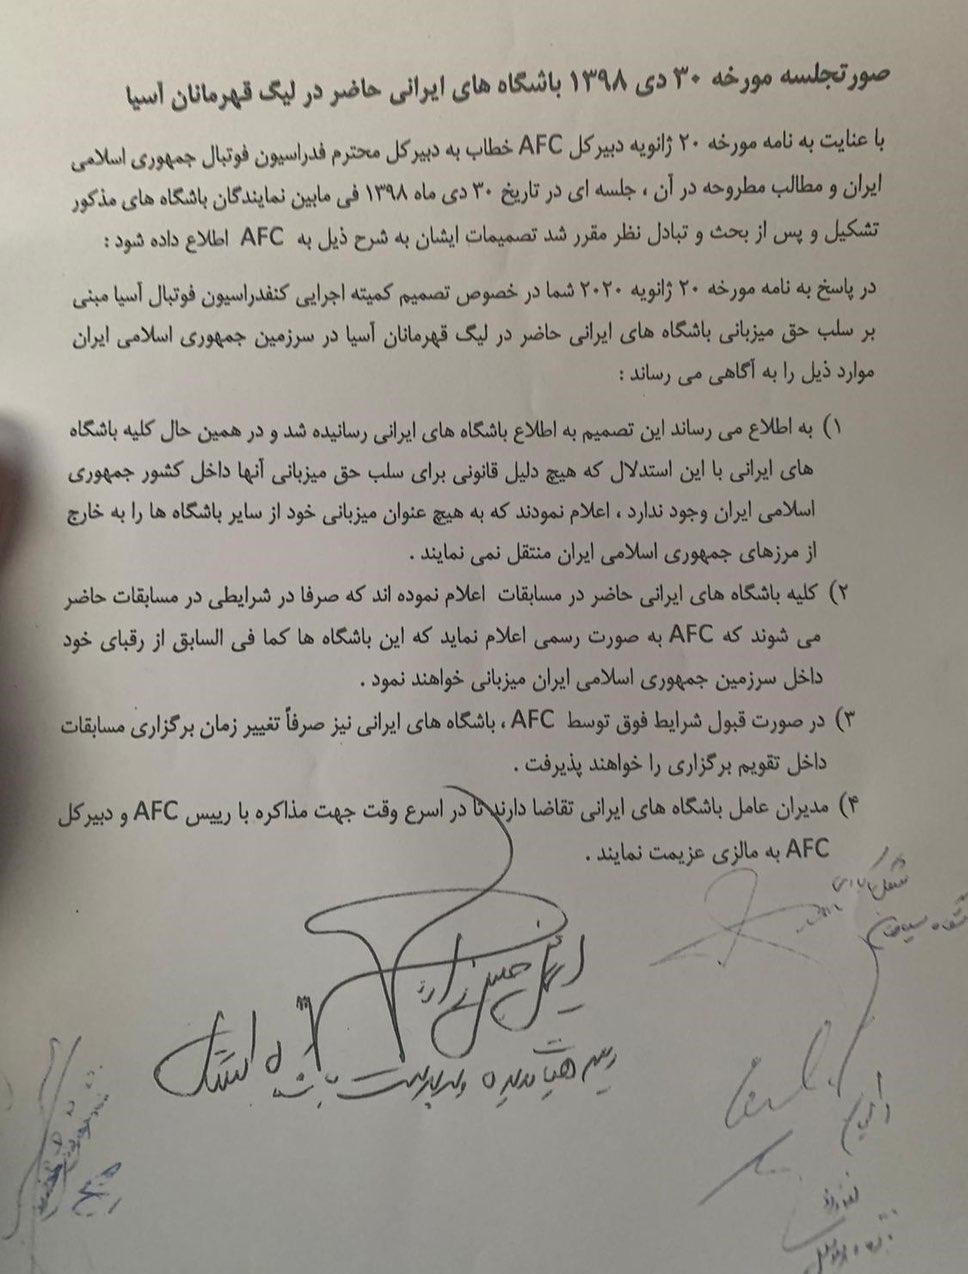 صورتجلسه مورخه ۳۰ دی ۱۳۹۸ باشگاه های ایرانی حاضر در لیگ قهرمانان آسیا
با عنایت به نامه مورخه ۲۰ ژانویه دبیرکل AFC خطاب به دبیرکل محترم فدراسیون فوتبال جمهوری اسلامی
ایران و مطالب مطروحه در آن ، جلسه ای در تاریخ ۳۰ دی ماه ۱۳۹۸ فی مابین نمایندگان باشگاه های مذکور
تشکیل و پس از بحث و تبادل نظر مقرر شد تصمیمات ایشان به شرح ذیل به AFC اطلاع داده شود :
در پاسخ به نامه مورخه ۲۰ ژانویه ۲۰۲۰ شما در خصوص تصمیم کمیته اجرایی کنفدراسیون فوتبال آسیا مبنی
بر سلب حق میزبانی باشگاه های ایرانی حاضر در لیگ قهرمانان آسیا در سرزمین جمهوری اسلامی ایران
موارد ذیل را به آگاهی می رساند :
۱) به اطلاع می رساند این تصمیم به اطلاع باشگاه های ایرانی رسانیده شد و در همین حال کلیه باشگاه
های ایرانی با این استدلال که هیچ دلیل قانونی برای سلب حق میزبانی آنها داخل کشور جمهوری
اسلامی ایران وجود ندارد ، اعلام نمودند که به هیچ عنوان میزبانی خود از سایر باشگاه ها را به خارج
از مرزهای جمهوری اسلامی ایران منتقل نمی نمایند .
۲) کلیه باشگاه های ایرانی حاضر در مسابقات اعلام نموده اند که صرفا در شرایطی در مسابقات حاضر
می شوند که AFC به صورت رسمی اعلام نماید که این باشگاه ها کما فی السابق از رقبای خود
داخل سرزمین جمهوری اسلامی ایران میزبانی خواهند نمود .
۳) در صورت قبول شرایط فوق توسط AFC ، باشگاه های ایرانی نیز صرفاً تغییر زمان برگزاری مسابقات
داخل تقویم برگزاری را خواهند پذیرفت .
۴) مدیران عامل باشگاه های ایرانی تقاضا دارند تا در اسرع وقت جهت مذاکره با رییس AFC و دبیرکل
AFC به مالزی عزیمت نمایند .
اسمعیل خلیل زاده
رییس هیات مدیره و سرپرست باشگاه استقلال